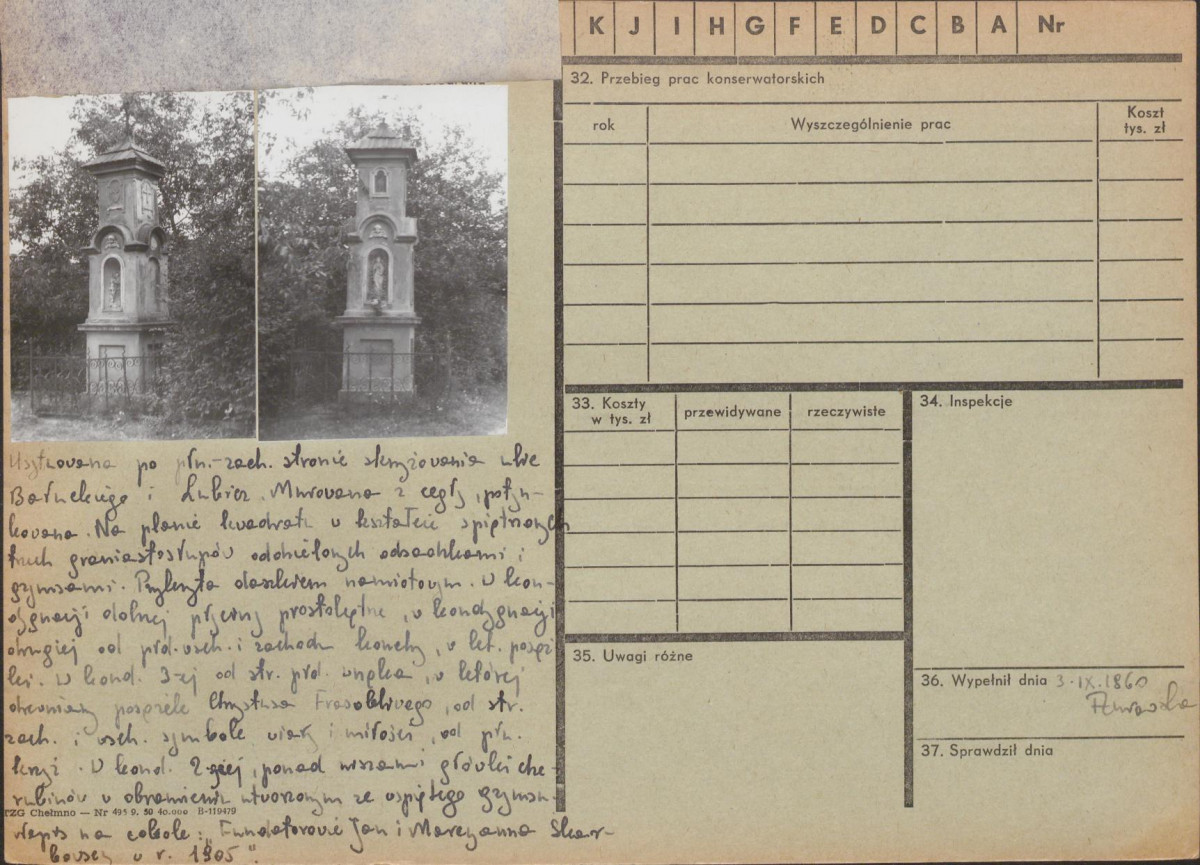 K J I H G F E D C B A Nr
32. Przebieg prac konserwatorskich
rok
Wyszczególnienie prac
Koszt
tys. zł
33. Koszty
w tys. zł
przewidywane
rzeczywiste
34. Inspekcje
35. Uwagi różne
36. Wypełnił dnia 3.IX.1960
37. Sprawdził dnia
Usytuowana po płn.-zach. stronie skrzyżowania ulic
i Lubicz. Murowana z cegły, potyn-
kowana. Na planie kwadratu w kształcie spiętrzonych
trzech graniastosłupów oddzielonych odsadzkami i
gzymsami. Przykryta daszkiem namiotowym. W kon-
dygnacji dolnej płyciny prostokątne, w kondygnacji
drugiej od płd. wsch. i zachodu konchy, w kt. posąż
ki. W kond. 3-ej od str. płd. wnęka, w której
drewniany posążek Chrystusa Frasobliwego, od str.
zach. i wsch. symbole wiary i miłości, od płn.
krzyż. W kond. 2-giej, ponad niszami główki che-
rubinów w obramieniu utworzonym ze wspiętego gzymsu.
TZG Chełmno — Nr 495 9. 50 40.000 B-119479
Napis na cokole: „Fundatorowie Jan i Maryanna Skar-
w r. 1905".